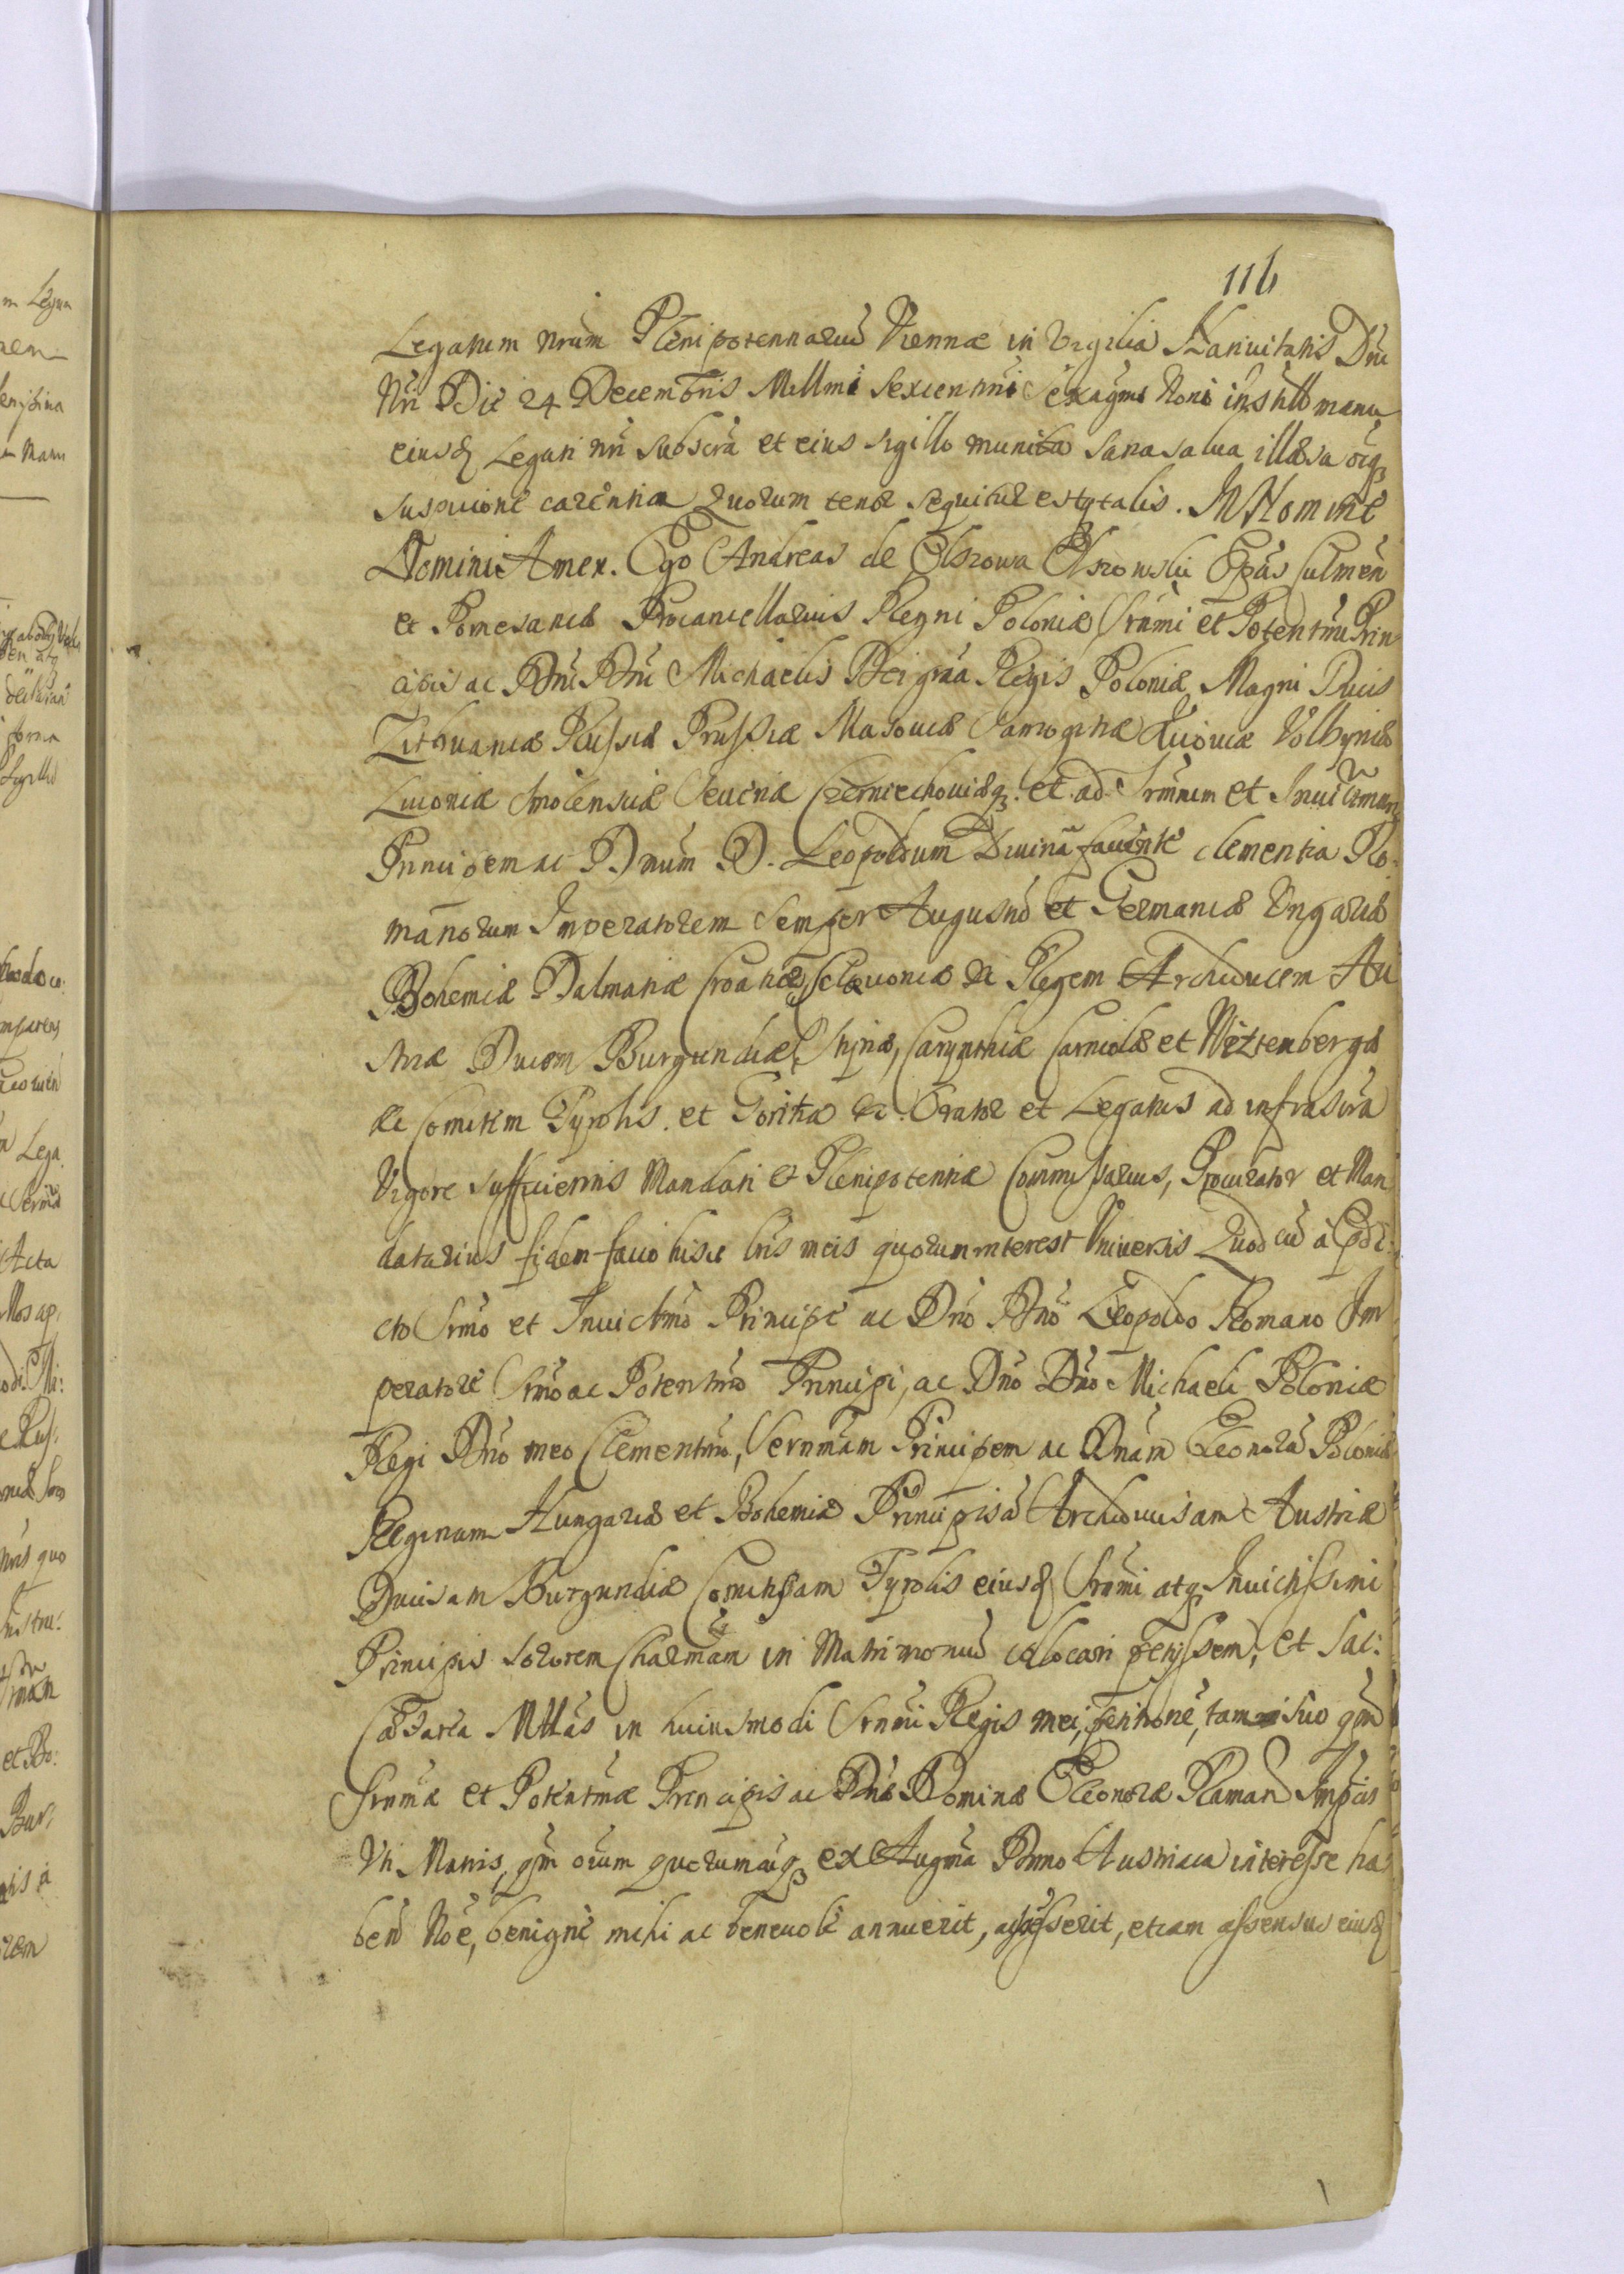 116
Legatum nrum Plenipotentiarium Viennæ in Vigilia Nativitatis Dni
Nri Die 24 Decembris Millmi Sexcentmi Sexagmi Noni manu
eiusdem Legati nri Subscra et eius sigillo munita sana salva illæsa oiq3
suspicione carentia quorum tenor sequitur estq talis. In Nomine
Domini Amen. Ego Andreas de Olszowa Olszowski Epus Culmen
et Pomesaniæ Procancellarius Regni Poloniæ Srnmi et Potentmi Prin
cipis ac Dni Dni Michaelis Dei gratia Regis Poloniæ Magni Ducis
Lithuaniæ Russiæ Prussiæ Masoviæ Samogitiæ Kijoviæ Volhyniæ
Livoniæ Smolensciæ Severiæ Czerniechoviæq3 et ad Srnmum et Invictmum
Principem ac Dnum D. Leopoldum Divina favente clementia Ro
manorum Imperatorem semper Augustu et Germaniæ Ungariæ
Bohemiæ Dalmatiæ Croatiæ, Sclavoniæ &c Regem Archiducem Au
striæ Ducem Burgundiæ Styriæ, Carynthiæ Carniolæ et Wirtembergæ
&c Comitem Tyrolis. et Goritiæ &c. Orator et Legatus ad infrascra
Vigore sufficientis Mandati et Plenipotentiæ Commissarius, Procurator et Man
datarius fidem facio hisce lris meis quorum interest Universis Quod cu a Prædi
cto Srmo et Invictmo Principe ac Dno Dno Leopoldo Romano Im
peratore Srmo ac Potentmo Principi, ac Dno Dno Michaeli Poloniæ
Regi Dno meo Clementmo, Sernmam Principem ac Dnam Eleonora Poloniæ
Reginam Hungariæ et Bohemiæ Principisa Archiducisam Austriæ
Ducisam Burgundiæ Comitissam Tyrolis eiusd Srnmi atq Invictissimi
Principis sororem Charmam in Matrimoniu collocari petijssem, et Sac:
Cæsarea Mttas in huiusmodi Srnmi Regis mei, petitione, tam suo qm
Srnmæ et Potentmæ Principis ac Dnæ Dominæ Eleonoræ Roman Impcis
Uti Matris, qm oium quorumcuq3 ex Augma Domo Austriaca interesse ha
ben Noe, benigne mihi ac benevole annuerit, assenserit, etiam assensus eiusd